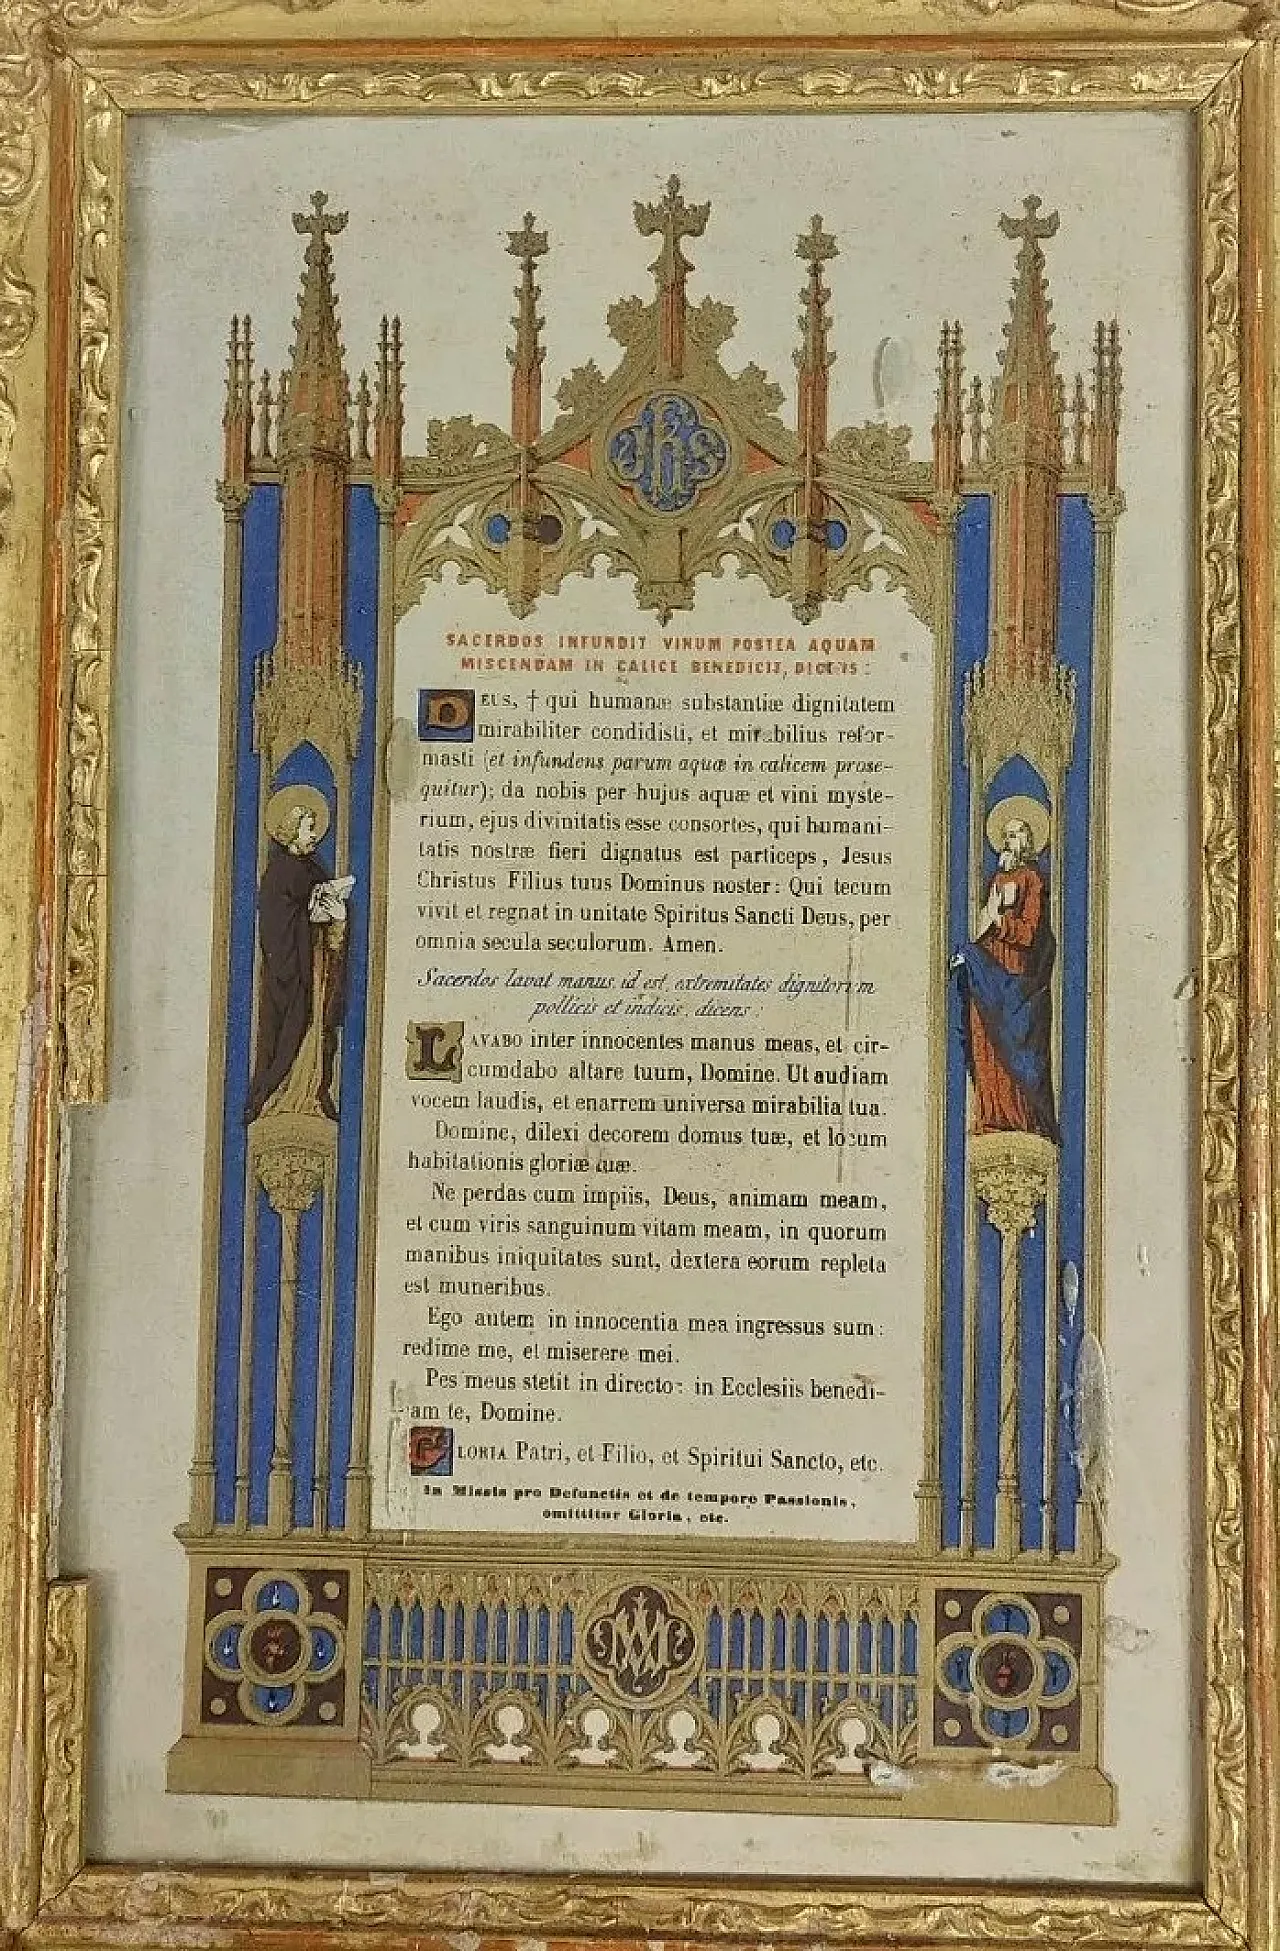 JHS
SACERDOS INFUNDIT VINUM POSTEA AQUAM
MISCENDAM IN CALICE BENEDICIT,
DEUS, † qui humanæ substantiæ dignitatem
mirabiliter condidisti, et mirabilius refor-
masti (et infundens parum aquæ in calicem prose-
quitur); da nobis per hujus aquæ et vini myste-
rium, ejus divinitatis esse consortes, qui humani-
tatis nostræ fieri dignatus est particeps, Jesus
Christus Filius tuus Dominus noster: Qui tecum
vivit et regnat in unitate Spiritus Sancti Deus, per
omnia secula seculorum. Amen.
Sacerdos lavat manus, id est, extremitates digitorum
pollicis et indicis, dicens:
LAVABO inter innocentes manus meas, et cir-
cumdabo altare tuum, Domine. Ut audiam
vocem laudis, et enarrem universa mirabilia tua.
Domine, dilexi decorem domus tuæ, et locum
habitationis gloriæ tuæ.
Ne perdas cum impiis, Deus, animam meam,
et cum viris sanguinum vitam meam, in quorum
manibus iniquitates sunt, dextera eorum repleta
est muneribus.
Ego autem in innocentia mea ingressus sum:
redime me, et miserere mei.
Pes meus stetit in directo: in Ecclesiis benedi-
cam te, Domine.
GLORIA Patri, et Filio, et Spiritui Sancto, etc.
In Missis pro Defunctis et de tempore Passionis,
omittitur Gloria, etc.